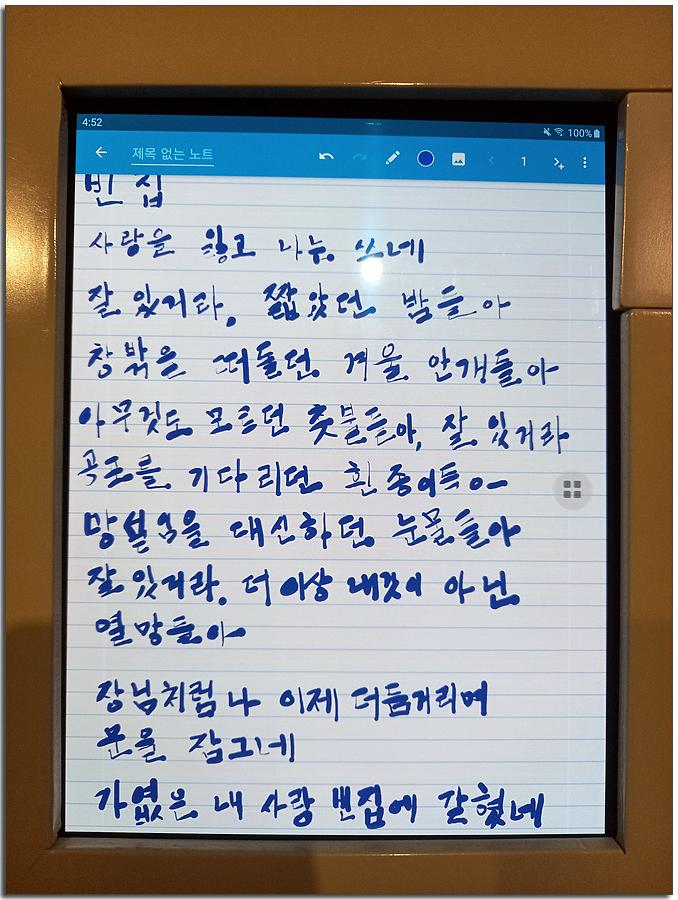 4:52
100%
제목 없는 노트
1
빈 집
사랑을 잃고 나는 쓰네
잘 있거라, 짧았던 밤들아
창밖을 떠돌던 겨울 안개들아
아무것도 모르던 촛불들아, 잘 있거라
공포를 기다리던 흰 종이들아
망설임을 대신하던 눈물들아
잘 있거라, 더 이상 내것이 아닌
열망들아
장님처럼 나 이제 더듬거리며
문을 잠그네
가엾은 내 사랑 빈집에 갇혔네